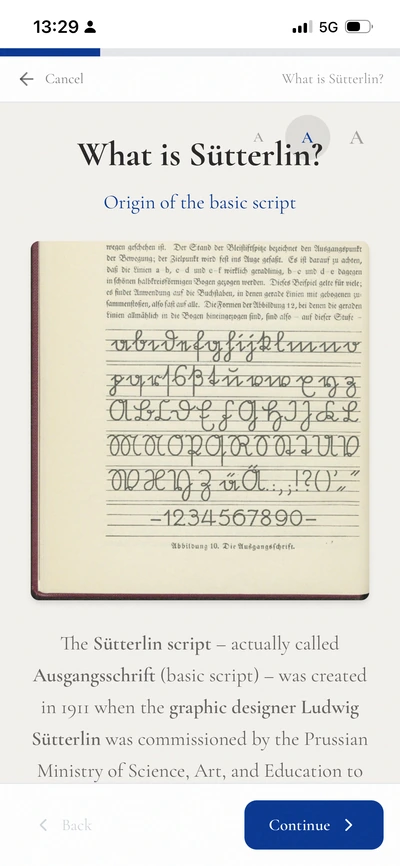 13:29
5G
Cancel
What is Sütterlin?
A A A
What is Sütterlin?
Origin of the basic script
wegen geschehen ist. Der Stand der Bleistiftspitze bezeichnet den Ausgangspunkt
der Bewegung; der Zielpunkt wird fest ins Auge gefaßt. Es ist darauf zu achten,
daß die Linien a–b, c–d und e–f wirklich geradlinig, b–c und d–e dagegen
in schönen halbkreisförmigen Bogen gezogen werden. Dieses Beispiel gelte für viele;
es findet Anwendung auf die Buchstaben, in denen gerade Linien mit gebogenen zu-
sammenstoßen, also fast auf alle. Die 12, bei denen die geraden
Linien allmählich in die Bogen hineingezogen sind, sind also – auf dieser Stufe –
a b c d e f g h i j k l m n o
A B C D E F G H I J K L
M N O P Q R S T U V
W X Y Z ü Ä . : , ; ! ? ( ) ' „ "
–1234567890–
Abbildung 10. Die Ausgangsschrift.
The Sütterlin script – actually called
Ausgangsschrift (basic script) – was created
in 1911 when the graphic designer Ludwig
Sütterlin was commissioned by the Prussian
Ministry of Science, Art, and Education to
Back
Continue